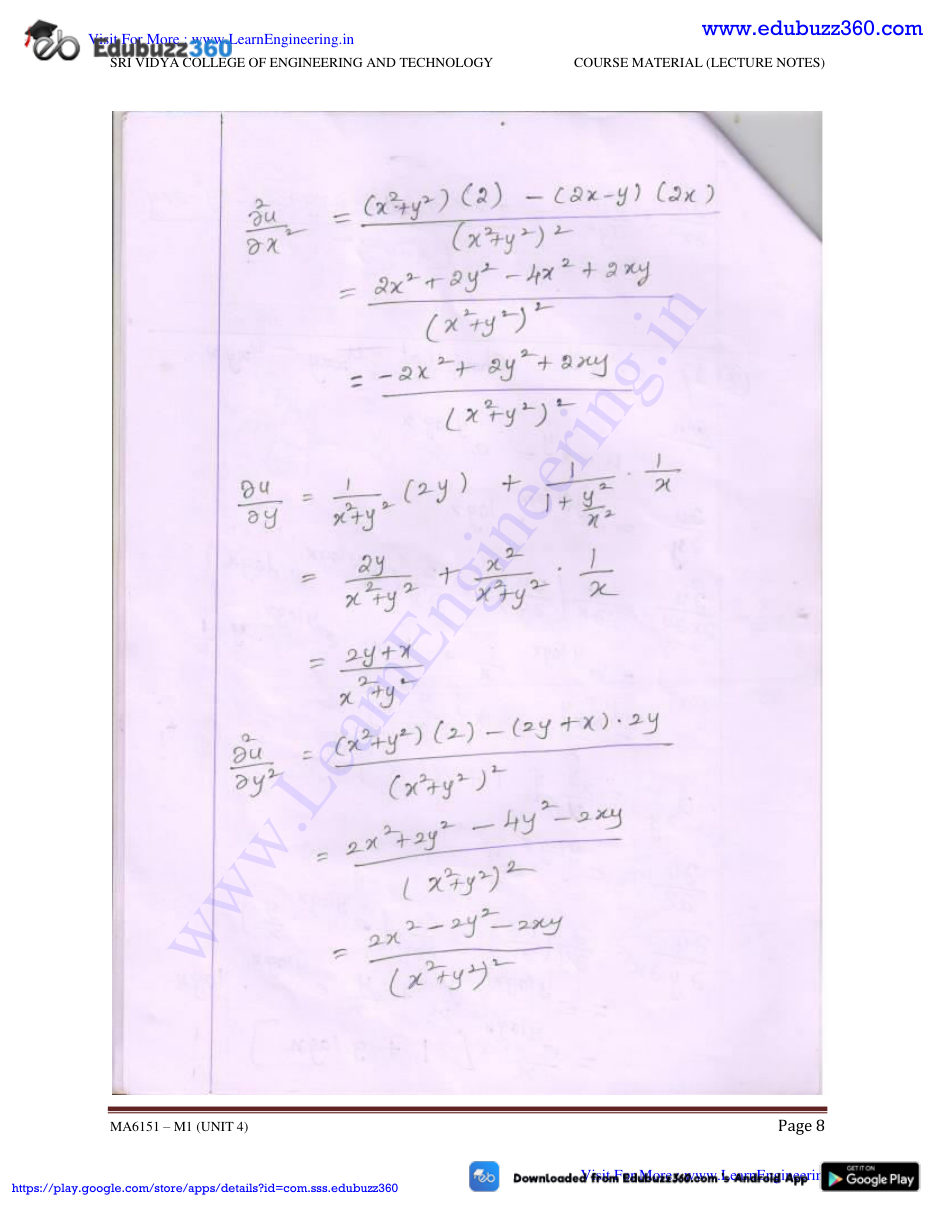 www.edubuzz360.com
Visit For More : www.LearnEngineering.in
Edubuzz360
SRI VIDYA COLLEGE OF ENGINEERING AND TECHNOLOGY COURSE MATERIAL (LECTURE NOTES)
∂²u/∂x² = (x²+y²)(2) - (2x-y)(2x) / (x²+y²)²
= 2x² + 2y² - 4x² + 2xy / (x²+y²)²
= -2x² + 2y² + 2xy / (x²+y²)²
∂u/∂y = 1/x²+y² (2y) + 1/1+y²/x² · 1/x
= 2y/x²+y² + x²/x²+y² · 1/x
= 2y+x / x²+y²
∂²u/∂y² = (x²+y²)(2) - (2y+x)·2y / (x²+y²)²
= 2x²+2y² - 4y² - 2xy / (x²+y²)²
= 2x² - 2y² - 2xy / (x²+y²)²
www.LearnEngineering.in
MA6151 – M1 (UNIT 4) Page 8
https://play.google.com/store/apps/details?id=com.sss.edubuzz360
Downloaded from EduBuzz360.com 's Android App
Visit For More : www.LearnEngineerin
GET IT ON
Google Play